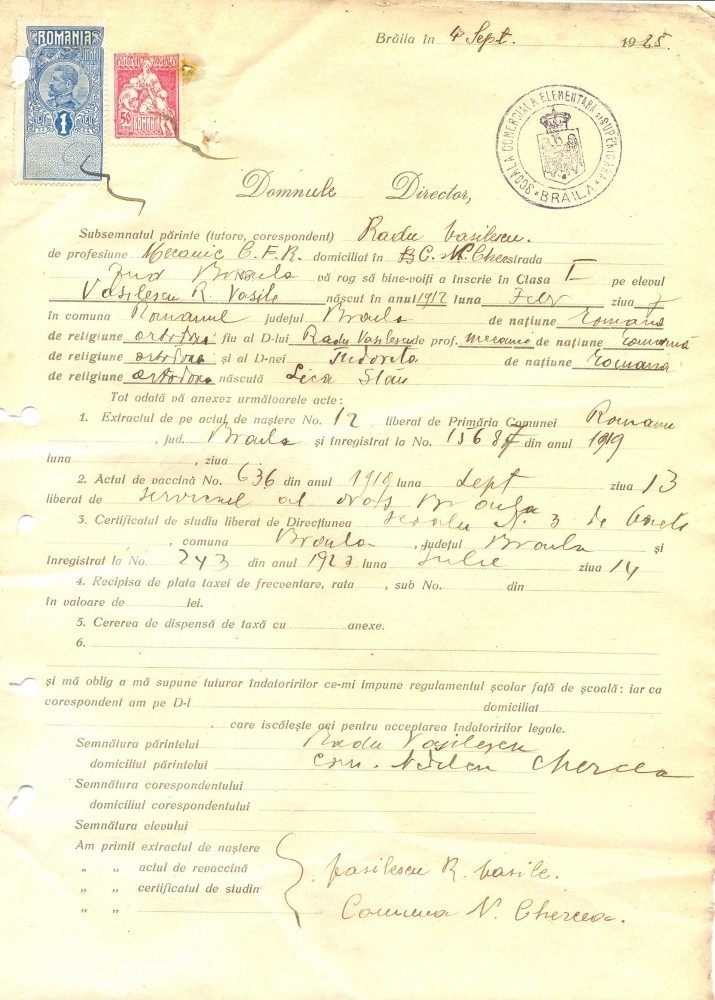 ROMANIA
1
50
ROMANIA
Brăila în 4 Sept. 1925.
ȘCOALA COMERCIALĂ ELEMENTARĂ ȘI SUPERIOARĂ
* BRAILA *
Domnule Director,
Subsemnatul părinte (tutore, corespondent) Radu Vasilescu.
de profesiune Mecanic C.F.R. domiciliat în C. N. Cher strada
Jud Braila vă rog să bine-voiți a înscrie în Clasa I pe elevul
Vasilescu R. Vasile născut în anul 1912 luna Febr ziua 7
în comuna Romanul județul Braila de națiune Romana
de religiune ortodoxa fiu al D-lui Radu Vasilescu de prof. mecanic de națiune romană
de religiune ortodoxa și al D-nei Tudorita de națiune romana
de religiune ortodoxa născută Lica Stan
Tot odată vă anexez următoarele acte:
1. Extractul de pe actul de naștere No. 12 liberat de Primăria Comunei Romanu
, jud. Braila și înregistrat la No. 15687 din anul 1919
luna , ziua
2. Actul de vaccină No. 636 din anul 1919 luna Sept ziua 13
liberat de serviciul al oraș Braila
3. Certificatul de studiu liberat de Direcțiunea scoalei N. 3 de baeti
, comuna Braila , județul Braila și
înregistrat la No. 243 din anul 1923 luna Iulie ziua 14
4. Recipisa de plata taxei de frecventare, rata , sub No. din
în valoare de lei.
5. Cererea de dispensă de taxă cu anexe.
6.
și mă oblig a mă supune tuturor îndatoririlor ce-mi impune regulamentul școlar față de școală: iar ca
corespondent am pe D-l domiciliat
. care iscălește aci pentru acceptarea îndatoririlor legale.
Semnătura părintelui Radu Vasilescu
domiciliul părintelui Com. Nedelcu Chercea
Semnătura corespondentului
domiciliul corespondentului
Semnătura elevului
Am primit extractul de naștere
„ „ actul de revaccină Vasilescu R. Vasile.
„ „ certificatul de studin
„ „ Comuna N. Chercea.